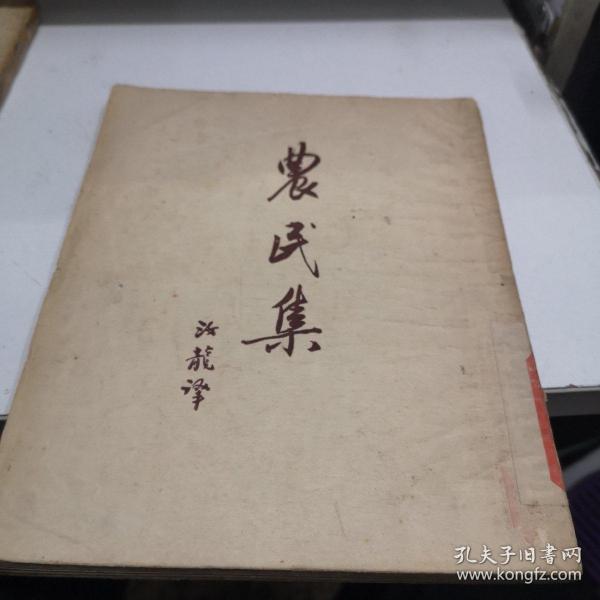 農民集
汝龍譯
孔夫子旧書网
www.kongfz.com